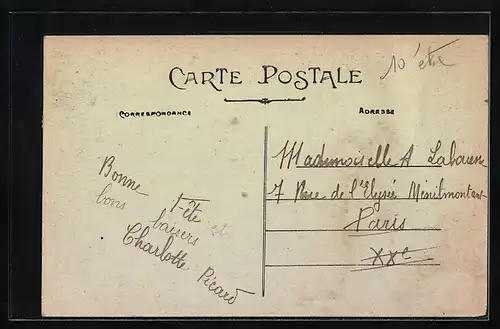 10 
CARTE POSTALE
CORRESPONDANCE
ADRESSE
Mademoiselle A
7 Rue de l'Elysée Ménilmontant
Paris
XXe
Bonne Fête et
bons baisers
Charlotte Picard